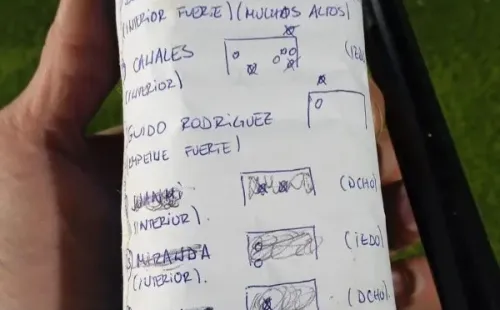 (INTERIOR FUERTE) (MUCHOS ALTOS)
CANALES (IZDO)
(INTERIOR)
GUIDO RODRIGUEZ
(EMPEINE FUERTE)
JUANMI (DCHO)
(INTERIOR).
MIRANDA (IZDO)
(INTERIOR).
(DCHO).